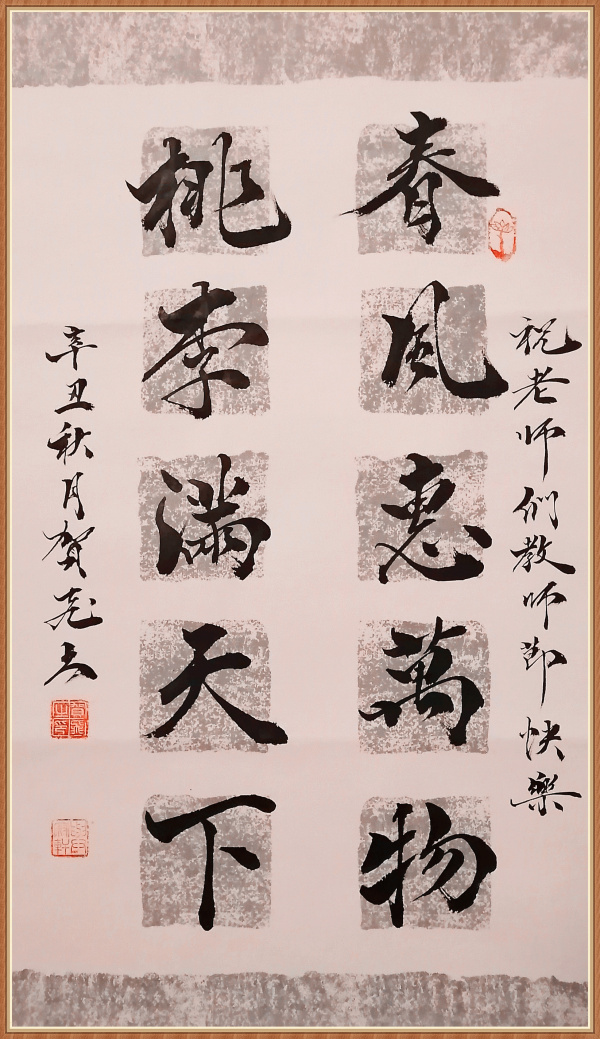 祝老师们教师节快樂
春风惠萬物
桃李满天下
辛丑秋月贺